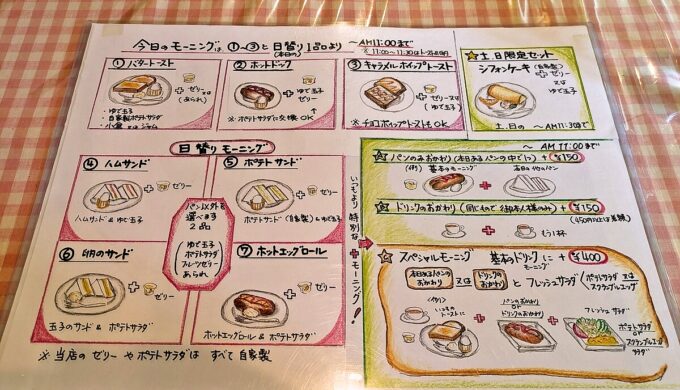 今日のモーニングは ①〜③と日替り1品より 〜AM11:00まで
(本日の)
① バタートースト
+ ゼリー
又は
(あられ)
・ゆで玉子
・自家製ポテトサラダ
・小倉 又は ジャム
② ホットドッグ
+ ゆで玉子
ゼリー
※ ポテトサラダに交換OK
③ キャラメルホイップトースト
+ ゼリー又は
(ゆで玉子)
※ チョコホイップトーストもOK
☆ 土、日限定セット
シフォンケーキ (自家製)
+ ゼリー
又は
ゆで玉子
土、日の 〜AM11:30まで
日替りモーニング
④ ハムサンド
+ ゼリー
ハムサンド & ゆで玉子
⑤ ポテトサンド
+ ゼリー
ポテトサンド (自家製) & ゆで玉子
パン以外を
選べます
2品
ゆで玉子
ポテトサラダ
フルーツゼリー
あられ
⑥ 卵のサンド
+ ゼリー
玉子のサンド & ポテトサラダ
⑦ ホットエッグロール
+ ゼリー
ホットエッグロール & ポテトサラダ
※ 当店の ゼリー や ポテトサラダは すべて 自家製
いつもより特別な + モーニング!
〜AM 11:00まで
☆ パンのおかわり (本日あるパンの中で1つ) + ¥150
(例) 基本のモーニング + 本日の他のパン
☆ ドリンクのおかわり (同じもので御本人様のみ) + ¥150
+ もう1杯
☆ スペシャルモーニング 基本のドリンクに + ¥400
モーニング
本日あるパンのおかわり 又は ドリンクのおかわり と フレッシュサラダ / ポテトサラダ 又は スクランブルエッグ
(例)
いつものトーストに
+ パンのおかわり
or
ドリンクのおかわり
+ フレッシュサラダ
ポテトサラダ
or
スクランブルエッグ
サラダ